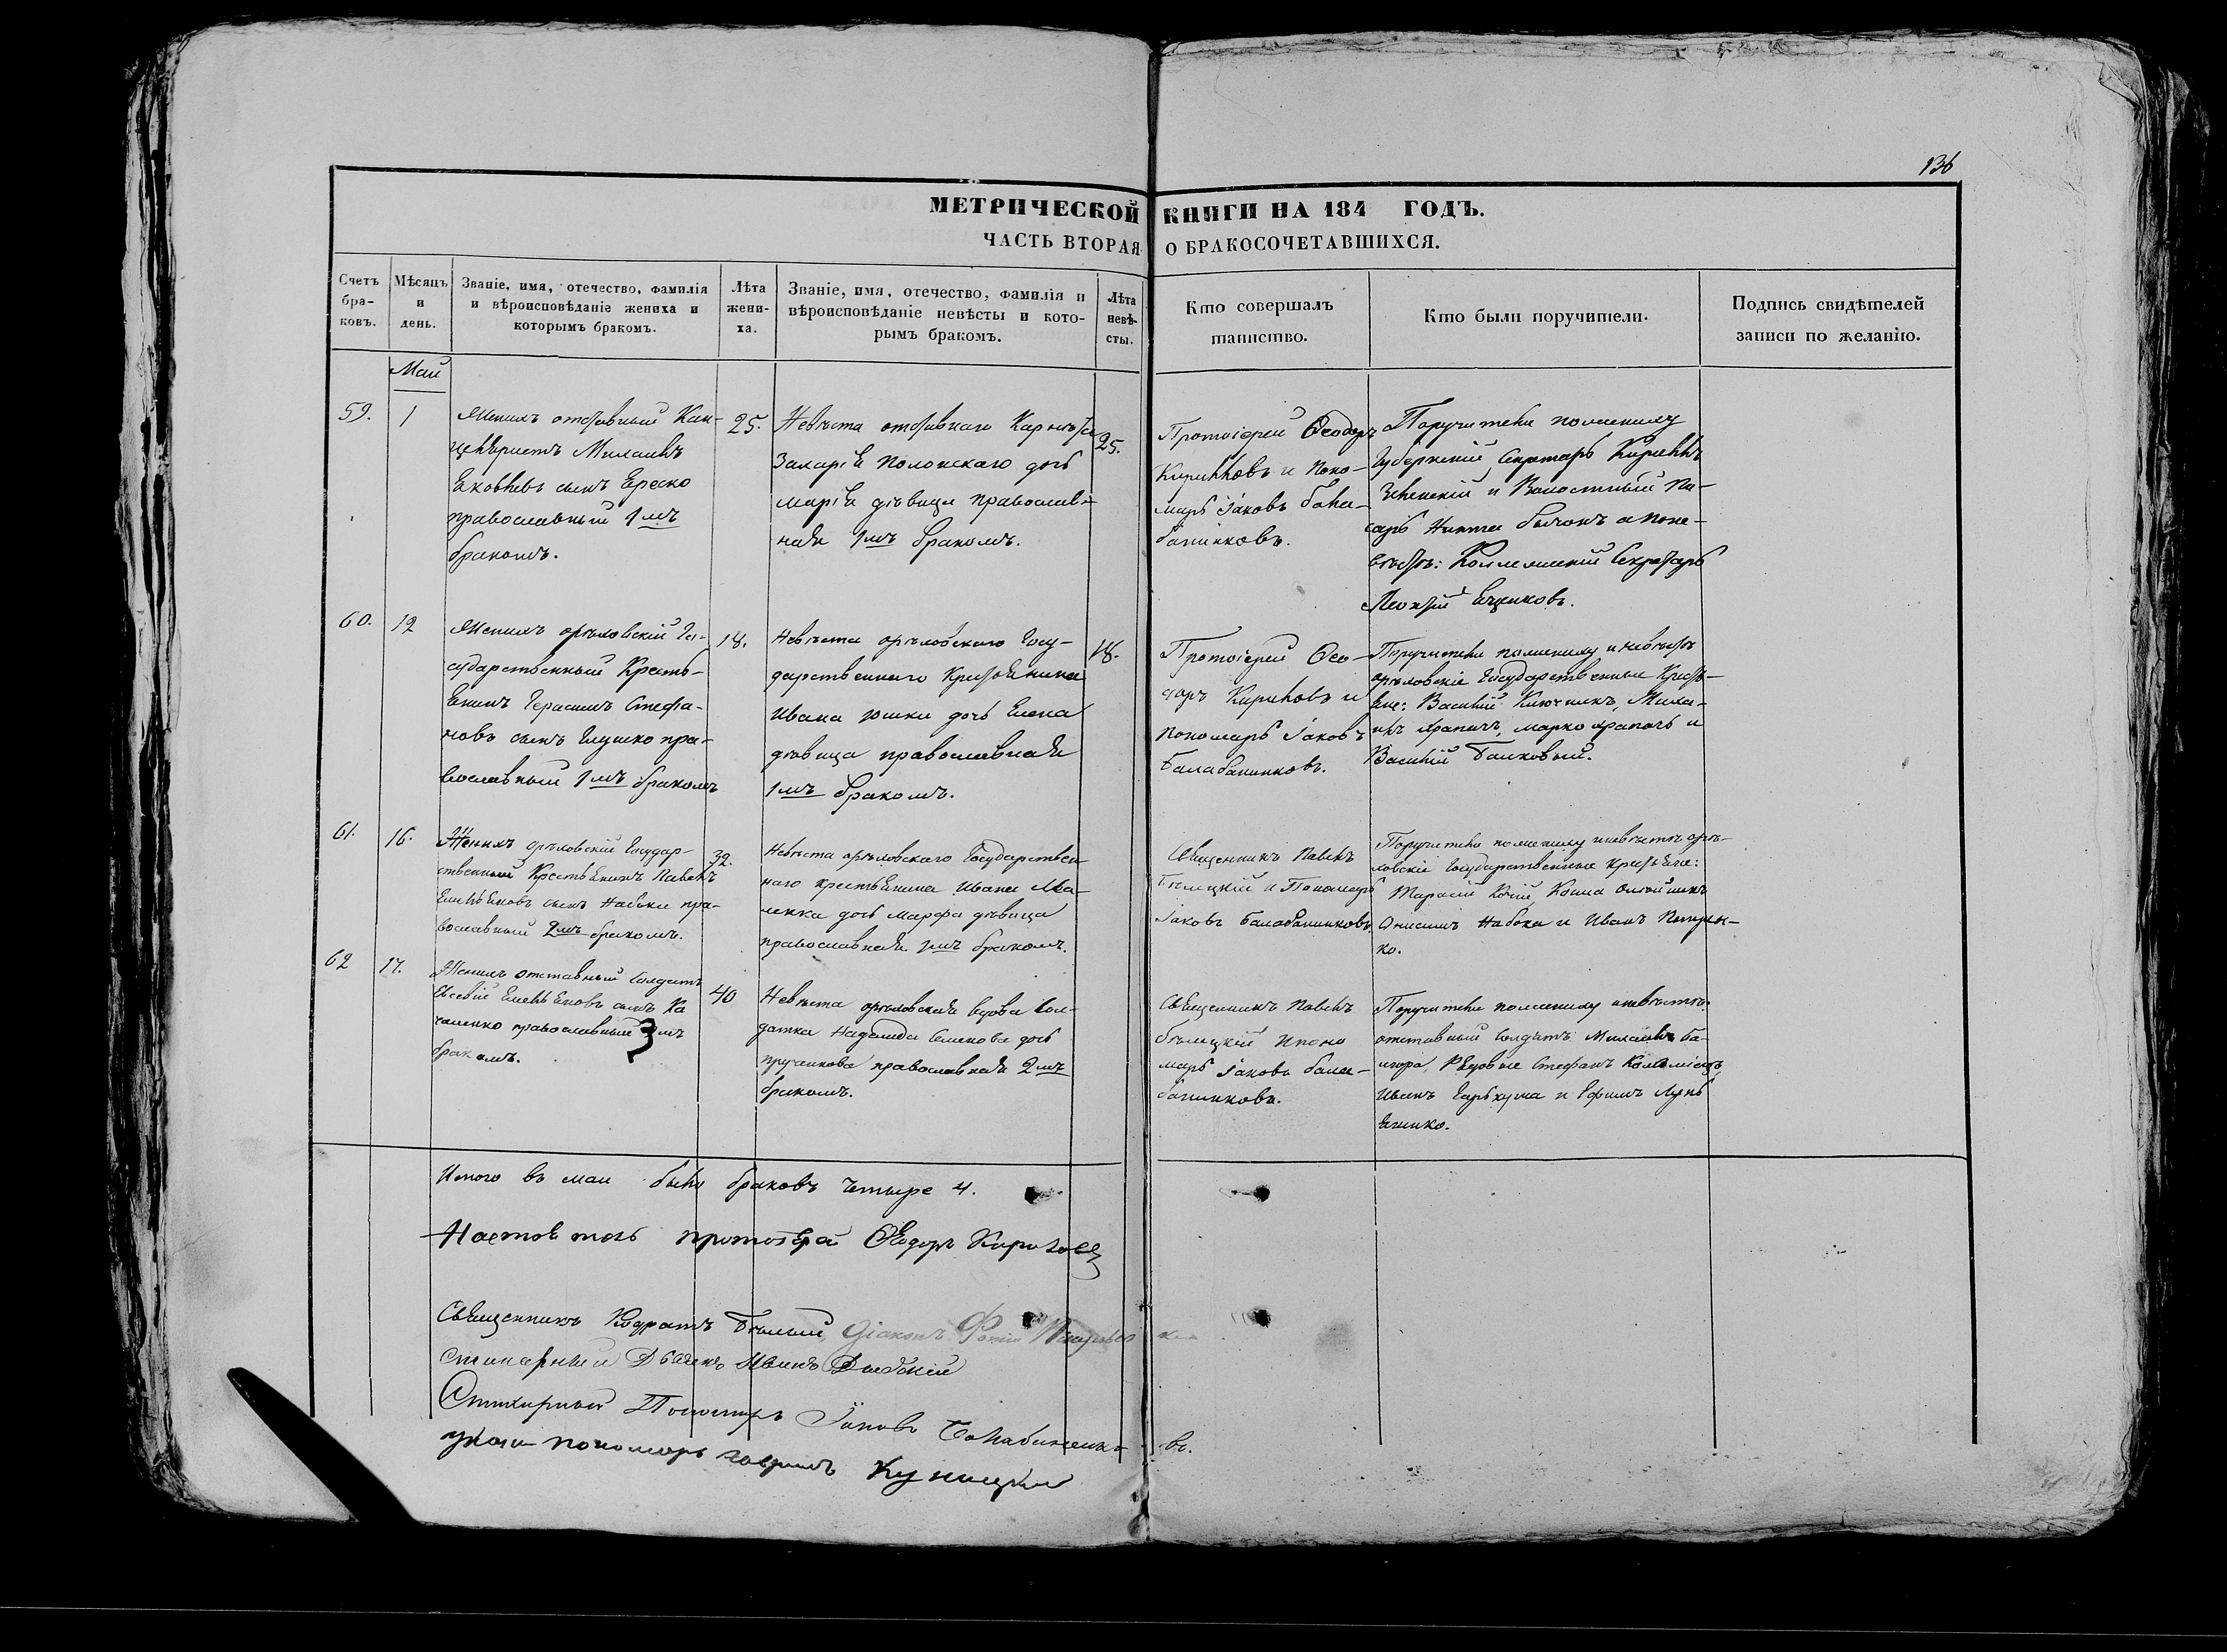 136
МЕТРИЧЕСКОЙ КНИГИ НА 184 ГОДЪ.
ЧАСТЬ ВТОРАЯ О БРАКОСОЧЕТАВШИХСЯ.
Счетъ бра-ковъ.
Мѣсяцъ и день.
Званіе, имя, отечество, фамилія
и вѣроисповѣданіе жениха и
которымъ бракомъ.
Лѣта жени-ха.
Званіе, имя, отечество, фамилія и
вѣроисповѣданіе невѣсты и кото-
рымъ бракомъ.
Лѣта невѣ-сты.
Кто совершалъ
таинство.
Кто были поручители.
Подпись свидѣтелей
записи по желанію.
Май
59.
1
Женихъ отставный Кан-
целяристъ Михаилъ
Яковлевъ сынъ Ереско
православный 1мъ
бракомъ.
25.
Невѣста отставнаго
Захарія Полонскаго дочь
Марія дѣвица православ-
ная 1мъ бракомъ.
25.
Протоіерей Ѳеодоръ
Кириловъ и Поно-
марь Іаковъ Бала-
банинковъ.
Поручители по жениху
Губернскій Секретарь Кириллъ
и Волостный Пи-
сарь Никита а по не-
вѣстѣ: Коллежскій Секретарь
60.
12
Женихъ орѣловскій Го-
сударственный Кресть-
янинъ Герасимъ Стефа-
новъ сынъ Глушко пра-
вославный 1мъ бракомъ
18.
Невѣста орѣловскаго Госу-
дарственнаго Крестьянина
Ивана Юшки дочь Елена
дѣвица православная
1мъ бракомъ.
18.
Протоіерей Ѳео-
доръ Кириловъ и
пономарь Іаковъ
Балабанинковъ.
Поручители по жениху и невѣстѣ
орѣловскіе Государственные Кресть-
яне: Василій Ключникъ, Миха-
илъ Храпачъ, Марко Храпачъ и
Василій Балковый.
61.
16.
Женихъ орѣловскій Государ-
ственный Крестьянинъ Павелъ
Емельяновъ сынъ Набока пра-
вославный 2мъ бракомъ.
32.
Невѣста орѣловскаго Государствен-
наго крестьянина Ивана
дочь Марфа дѣвица
православная 1мъ бракомъ.
Священникъ Павелъ
Бѣлецкій и Пономарь
Іаковъ Балабанинковъ.
Поручители по жениху и невѣстѣ орѣ-
ловскіе Государственные Крестьяне:
Тарасій Косма
Онисимъ Набока и Иванъ Петрен-
ко.
62
17.
Женихъ отставный Солдатъ
Евсевій Емельяновъ сынъ Ка
православный 3мъ
бракомъ.
40
Невѣста орѣловская вдова Сол-
датка Надежда Семенова дочь
православная 2мъ
бракомъ.
Священникъ Павелъ
Бѣлецкій и поно
марь Іаковъ Бала-
банинковъ.
Поручители по жениху и невѣстѣ:
отставный Солдатъ Михаилъ
Рядовые Стефанъ Коломіецъ,
Иванъ и Ефимъ Лукь
яненко.
Итого въ маи было браковъ четыре 4.
Настоятель протоіерей Ѳеодоръ Кириловъ
Священникъ Кодратъ Бѣлый, Діаконъ
Стихарный Дьячекъ Иванъ
Стихарный Пономарь Іаковъ Балабанинковъ.
пономарь Куницкій